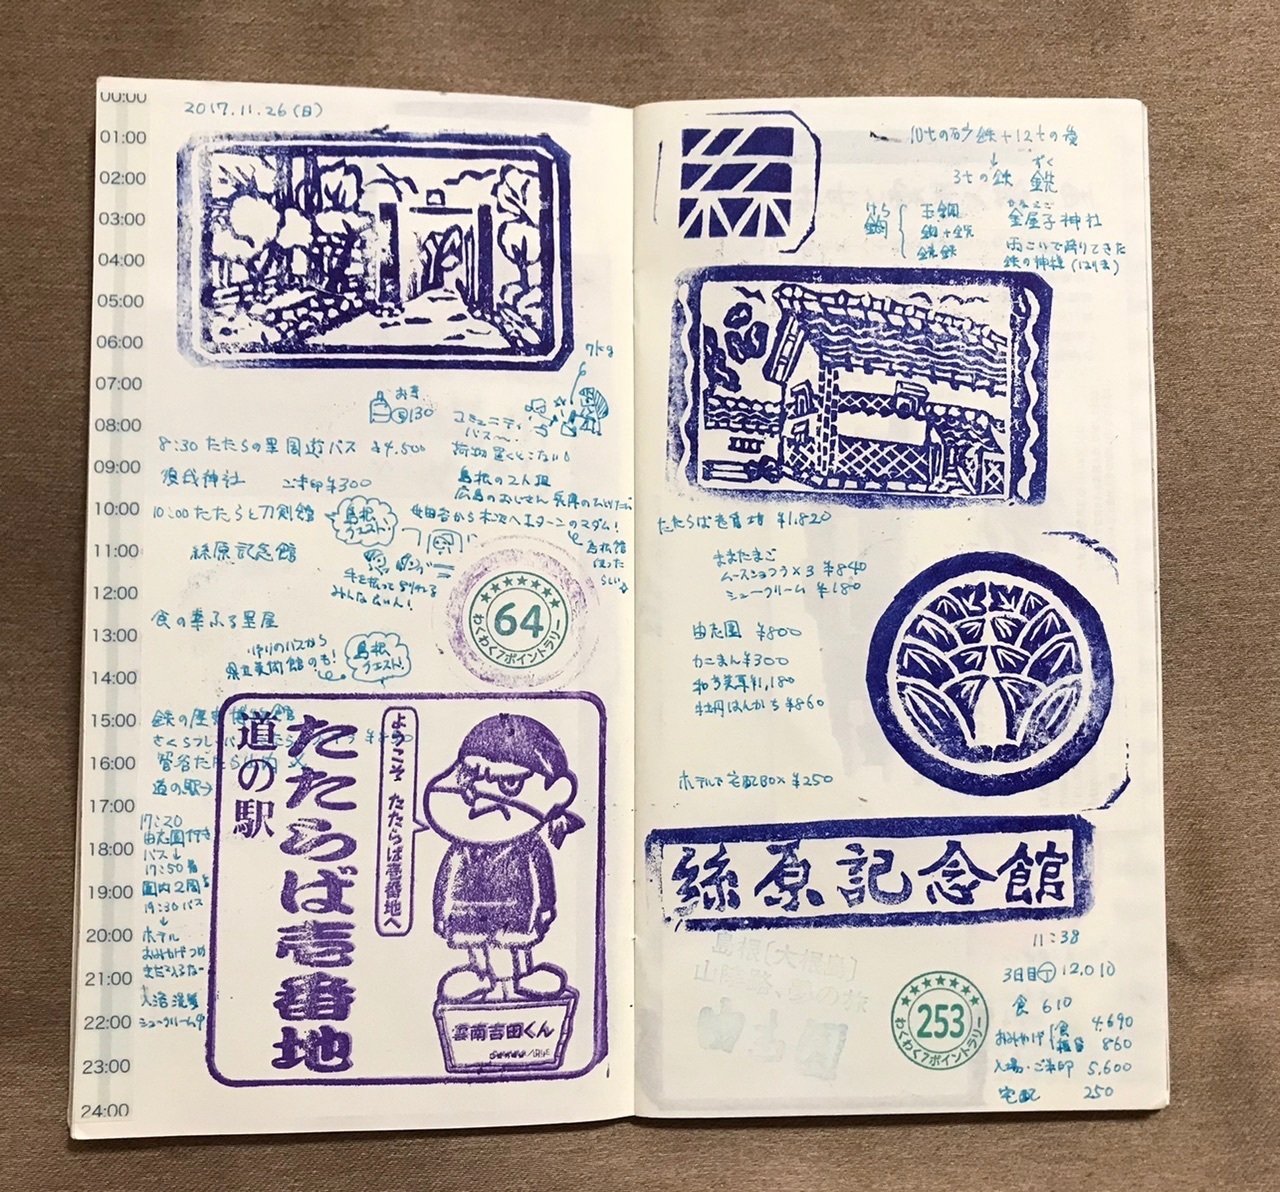 00:00
01:00
02:00
03:00
04:00
05:00
06:00
07:00
08:00
09:00
10:00
11:00
12:00
13:00
14:00
15:00
16:00
17:00
18:00
19:00
20:00
21:00
22:00
23:00
24:00
2017.11.26(日)
7kg
お茶
130
コミュニティ
バス〜
荷物置くとこない
8:30 たたらの里周遊バス ¥4,500
須我神社 ご朱印¥300
島根の2人組
10:00 たたらと刀剣館
島根
クエスト!
絲原記念館
みんないい人!
食の幸ふる里屋
帰りのバスから
県立美術館のも!
島根
クエスト!
64
わくわく7ポイントラリー
鉄の歴史博物館
菅谷たたら山内
道の駅→
17:20
由志園行き
バス↓
17:50着
園内2周
19:30 バス
↓
ホテル
おみやげつめ
入浴 洗髪
シュークリーム
道の駅
たたらば壱番地
ようこそ たたらば壱番地へ
雲南吉田くん
10tの砂鉄+12tの炭
↓ ずく
3tの鉄 銑
けら
鉧
玉鋼
鋼+銑
かなやご
金屋子神社
雨ごいで降りてきた
鉄の神様(はりま)
たたらば壱番地 ¥1,820
ままたまご
ムースしょうゆ×3 ¥840
シュークリーム ¥180
由志園 ¥800
かにまん¥300
¥1,180
牡丹はんかち ¥860
ホテルで宅配BOX ¥250
絲原記念館
11:38
島根[大根島]
3日目 12,010
食 610
おみやげ 食 4,690
860
入場・ご朱印 5,600
宅配 250
253
わくわく7ポイントラリー